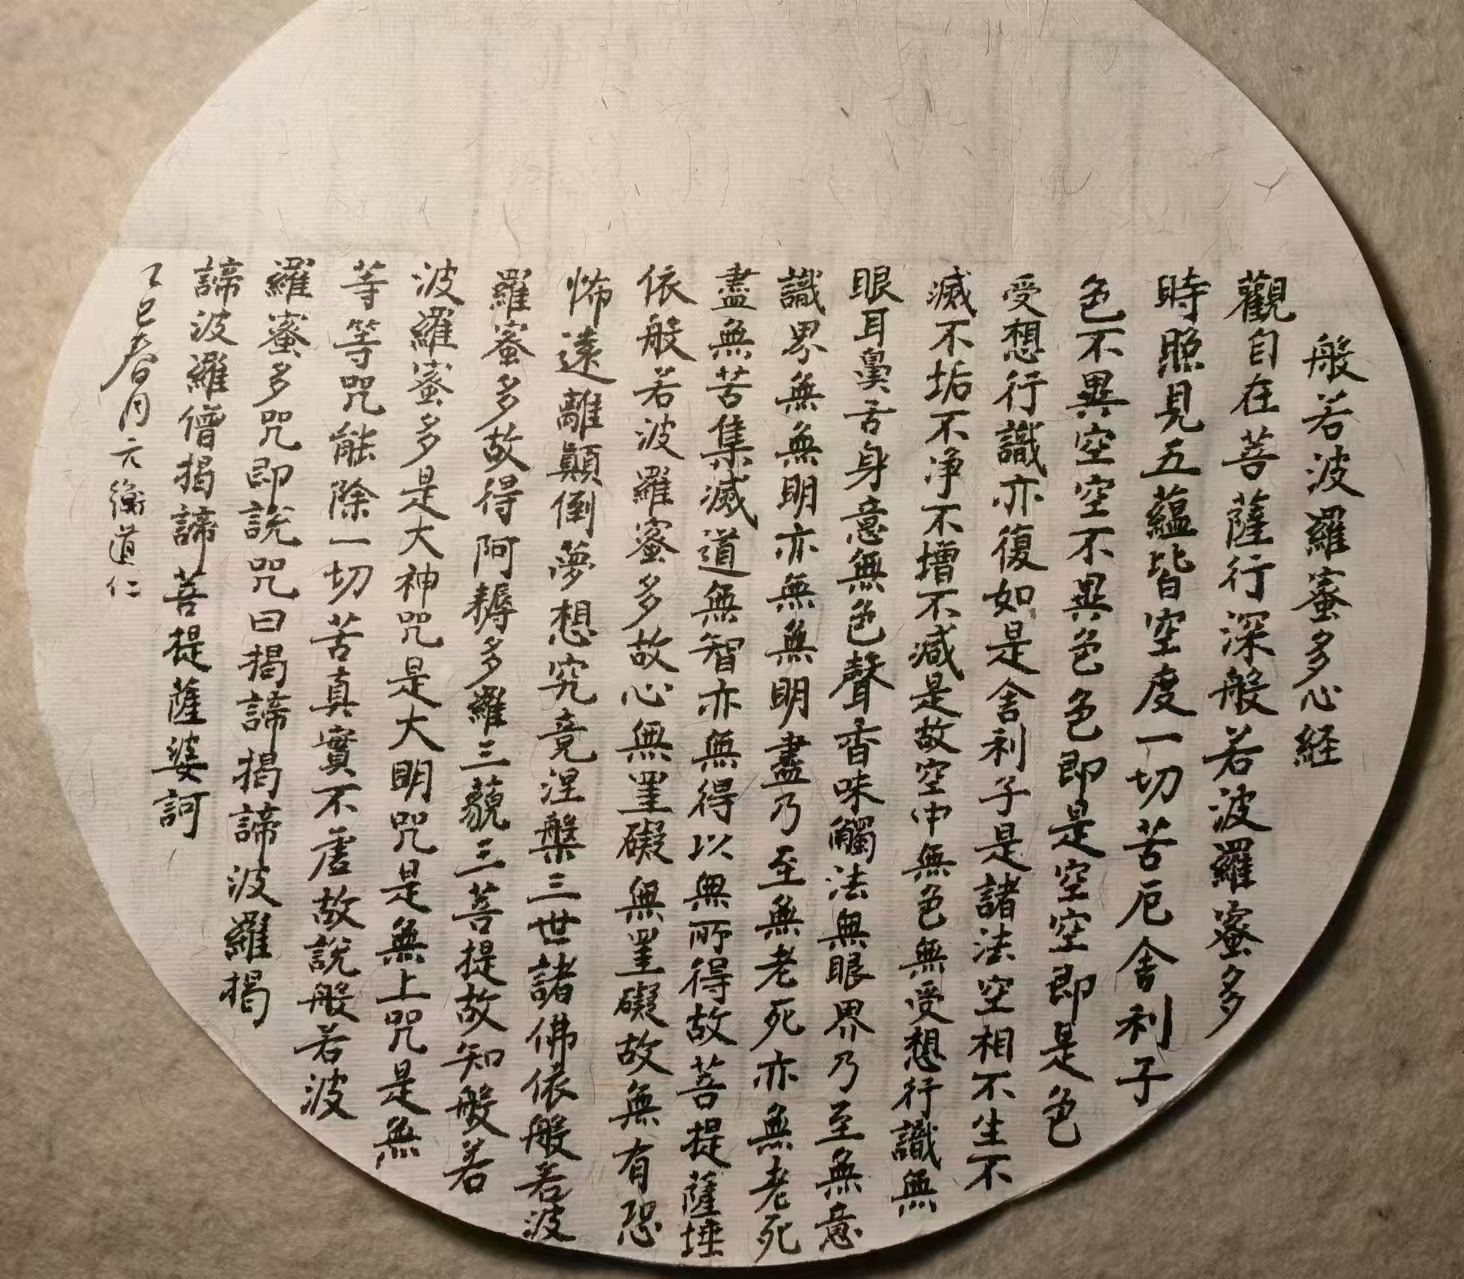 般若波羅蜜多心経
觀自在菩薩行深般若波羅蜜多
時照見五蘊皆空度一切苦厄舍利子
色不異空空不異色色即是空空即是色
受想行識亦復如是舍利子是諸法空相不生不
滅不垢不净不增不减是故空中無色無受想行識無
眼耳鼻舌身意無色聲香味觸法無眼界乃至無意
識界無無明亦無無明盡乃至無老死亦無老死
盡無苦集滅道無智亦無得以無所得故菩提薩埵
依般若波羅蜜多故心無罣礙無罣礙故無有恐
怖遠離顛倒夢想究竟涅槃三世諸佛依般若波
羅蜜多故得阿耨多羅三藐三菩提故知般若
波羅蜜多是大神咒是大明咒是無上咒是無
等等咒能除一切苦真實不虛故說般若波
羅蜜多咒即說咒曰揭諦揭諦波羅揭
諦波羅僧揭諦菩提薩婆訶
乙巳春月元衡道仁